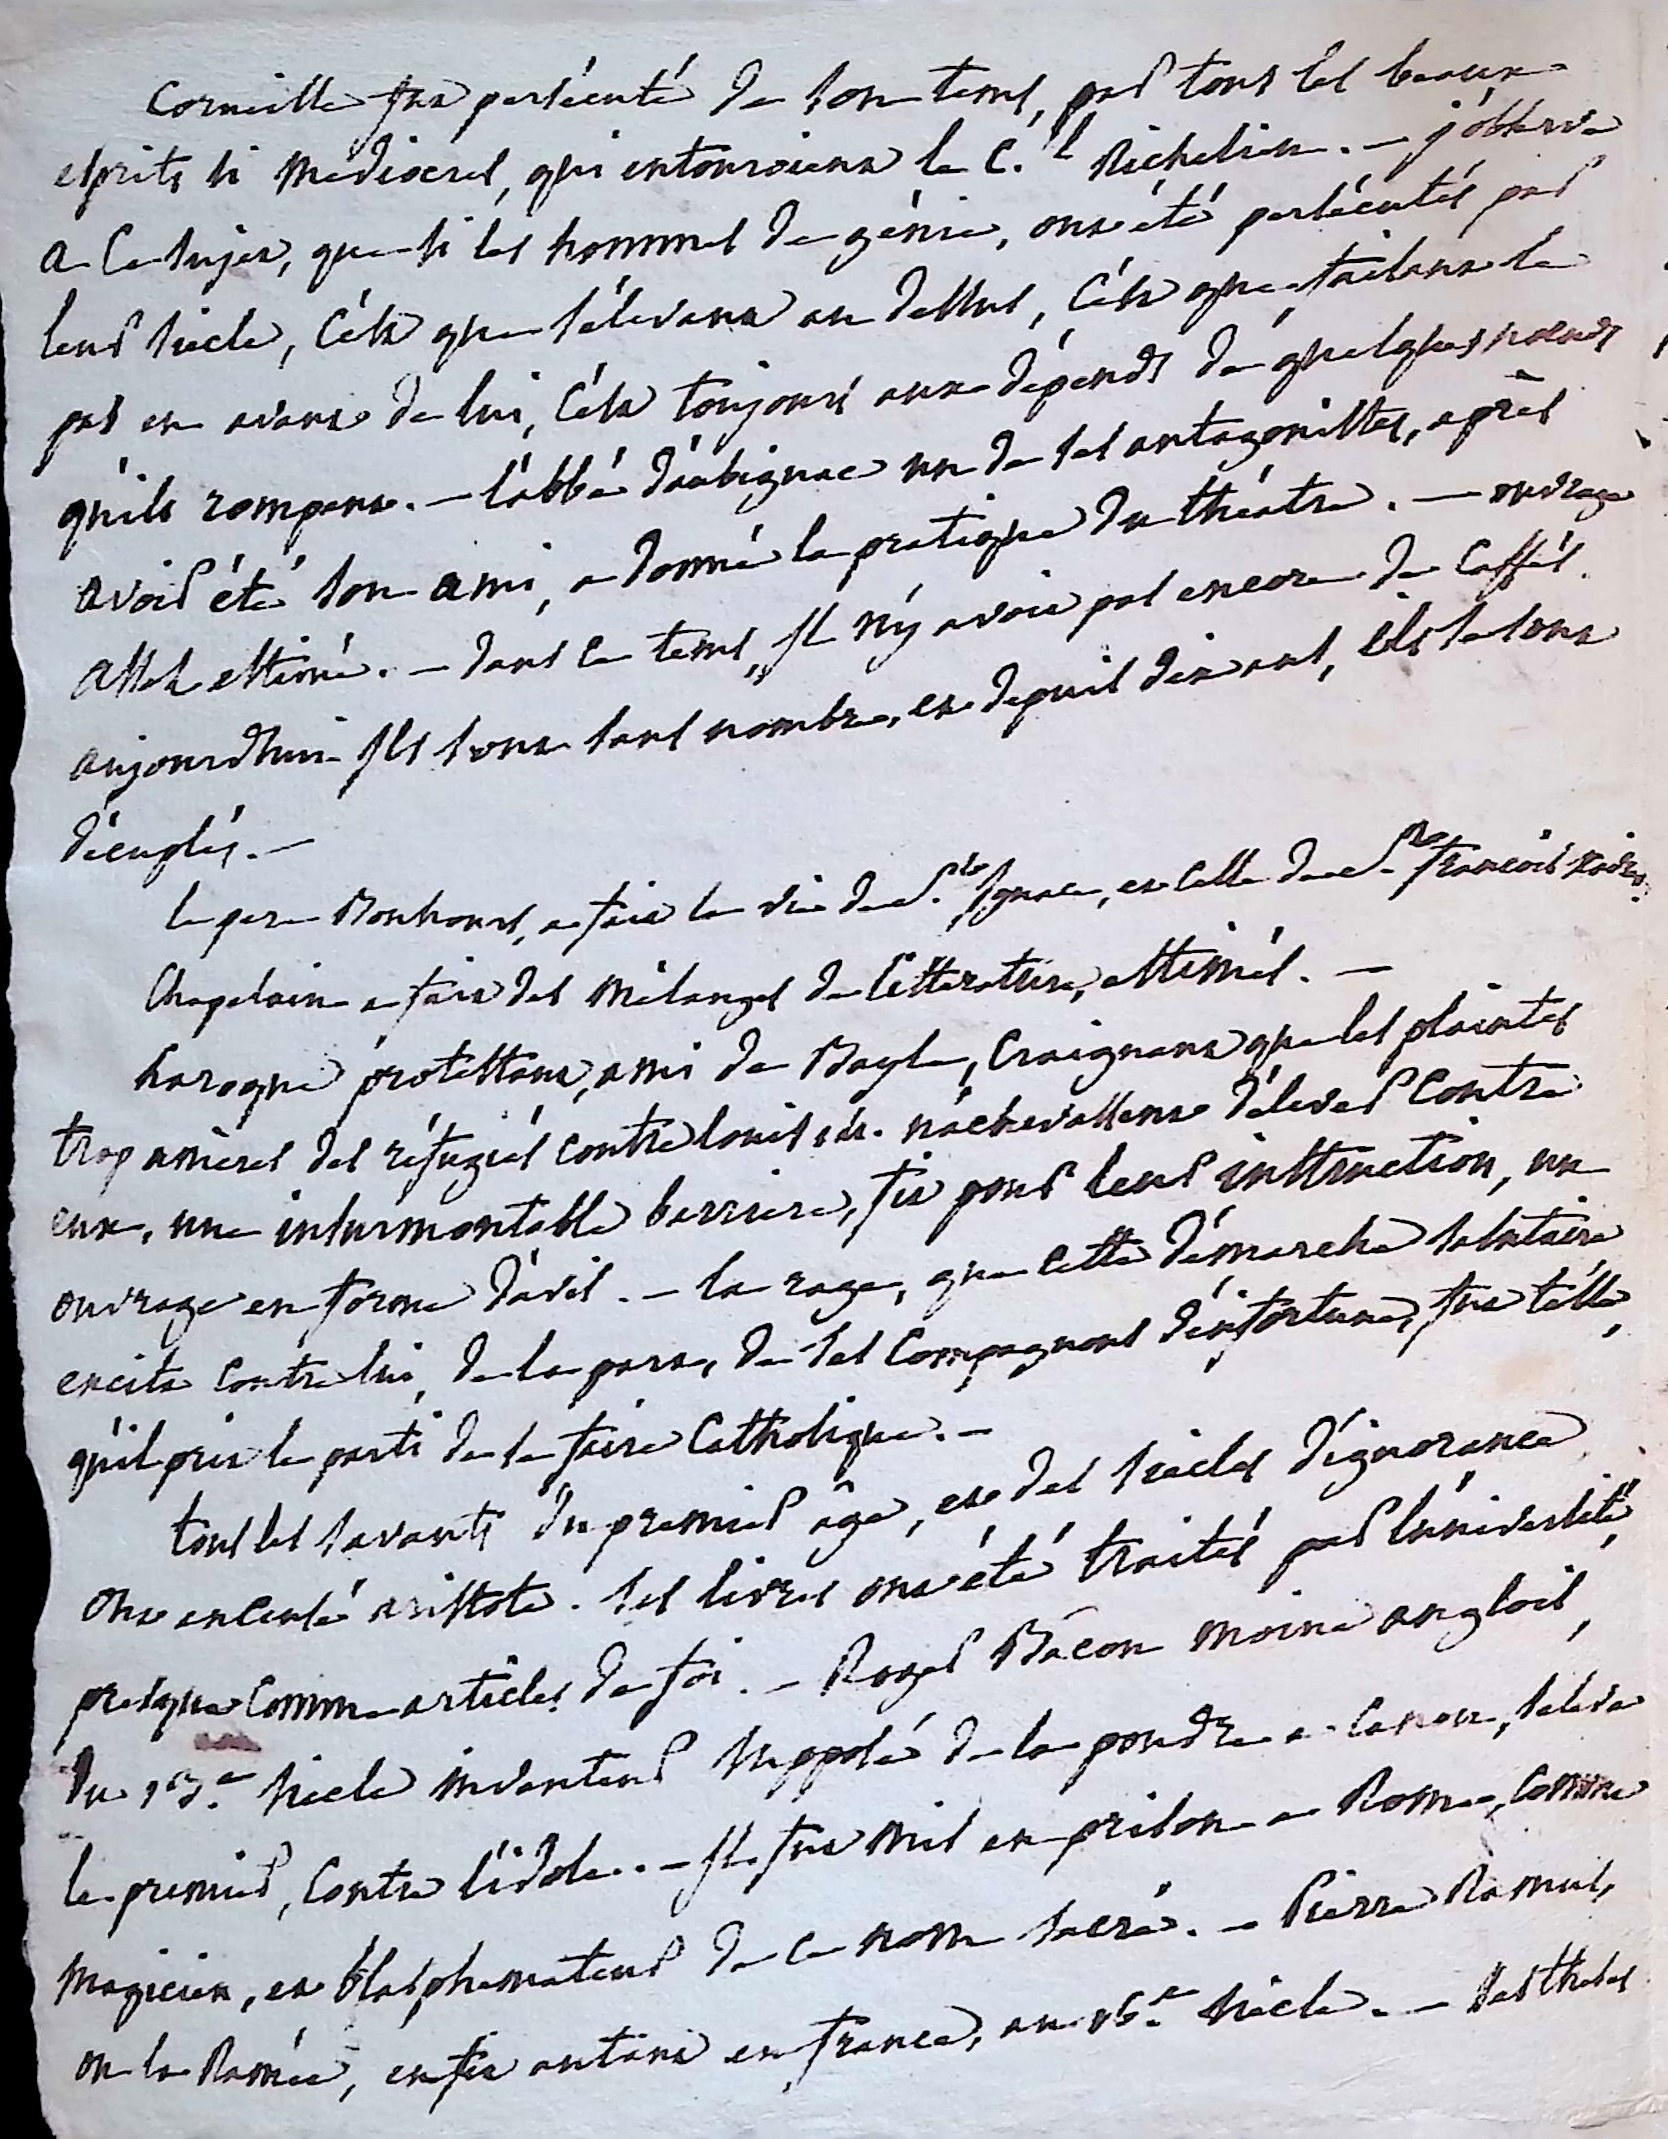 Corneille fut persécuté de son tems, par tous les beaux
esprits si mediocres, qui entouroient le C.al Richelieu. — j'observe
a ce sujet, que si les hommes de génie, ont été persécutés par
leur siecle, c'ést que s'élevant au dessus, c'ést que, faisant le
pas en avant de lui, c'ést toujours aux dépends de quelques nœuds
qu'ils rompent. — l'abbé d'aubignac un de ses antagonistes, après
avoir été son ami, a donné la pratique du théatre. — ouvrage
assez estimé. — dans ce tems, Il n'y avoit pas encore de Caffés.
aujourdhui Ils sont sans nombre, et depuis dix ans, ils se sont
décuplés. —
le pere Bouhours, a fait la vie de St. Ignace, et celle de St. françois
Chapelain a fait des mélanges de litterature, estimés. —
Laroque protestant, ami de Bayle, craignant que les plaintes
trop amères des réfugiés contre louis 14. n'achevassent d'élever contre
eux, une insurmontable barriere, fit pour leur instruction, un
ouvrage en forme d'avis. — la rage, que cette démarche salutaire
excita contre lui, de la part, de ses compagnons d'infortune, fut télle,
qu'il prit le parti de se faire Catholique. —
tous les savants du premier âge, et des siecles d'ignorance
ont encensé aristote. ses livres ont été traités par l'université,
presque comme articles de foi. — Roger Bacon moine anglois,
du 13.e siecle inventeur supposé de la poudre a canon, s'eleva
le premier, contre l'idole. — Il fut mis en prison a Rome, comme
magicien, et blasphemateur de ce nom sacré. — Pierre Ramus,
ou la Ramée, en fit autant en france, au 16.e siecle. — ses theses